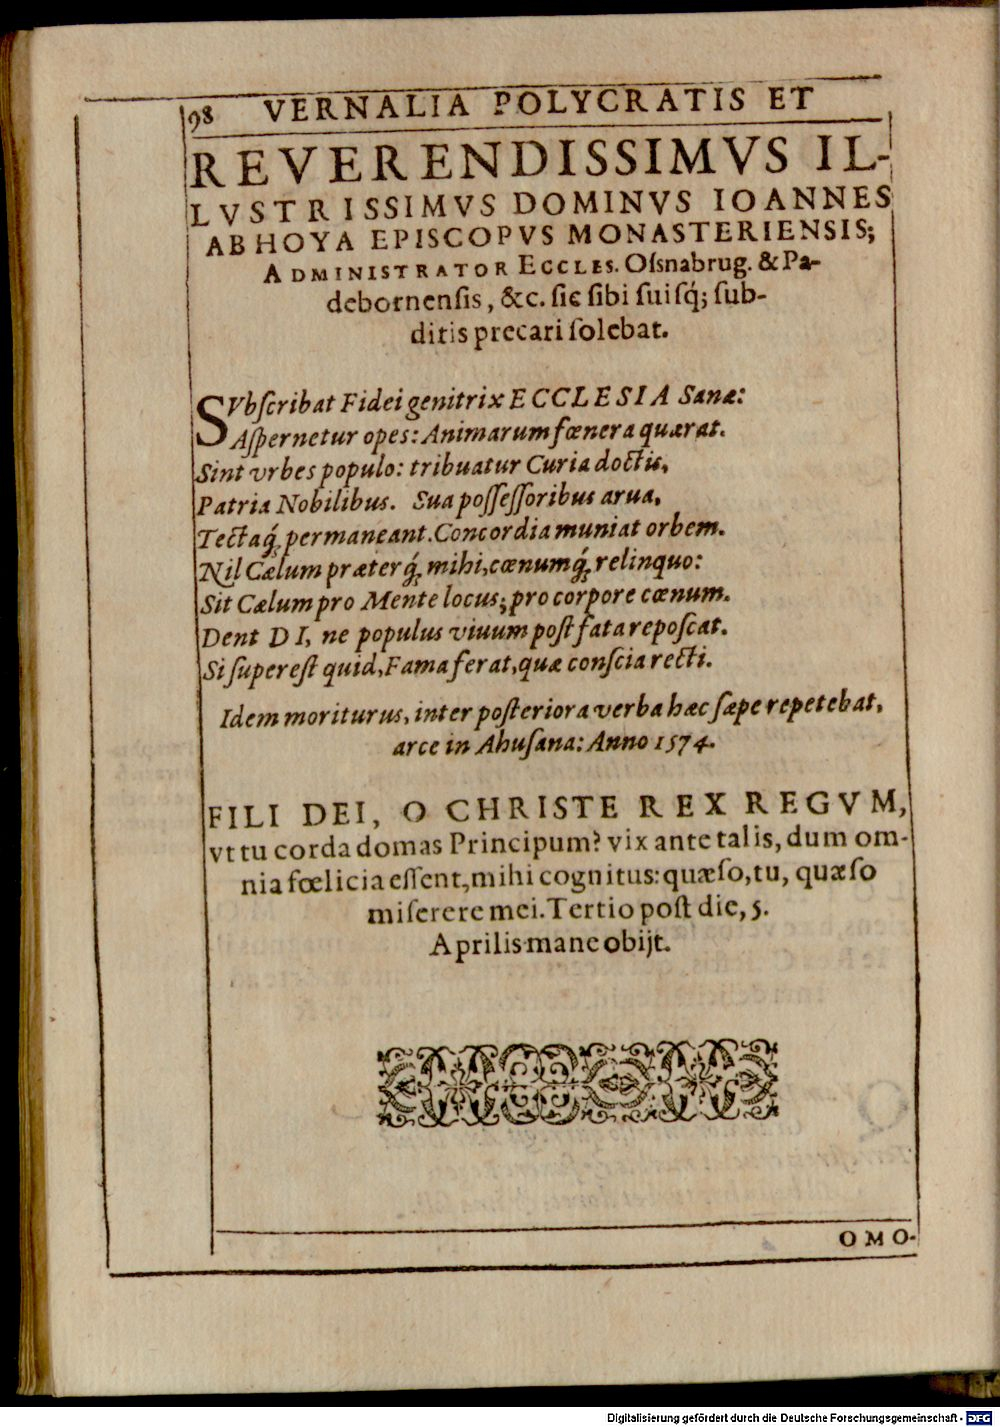 98 VERNALIA POLYCRATIS ET
REVERENDISSIMVS IL-
LVSTRISSIMVS DOMINVS IOANNES
AB HOYA EPISCOPVS MONASTERIENSIS;
ADMINISTRATOR ECCLES. Oſsnabrug. & Pa-
debornenſis, &c. ſic ſibi ſuiſq́; ſub-
ditis precari ſolebat.
SVbſcribat Fidei genitrix ECCLESIA Sanæ:
Aſpernetur opes: Animarum fœnera quærat.
Sint vrbes populo: tribuatur Curia doctis,
Patria Nobilibus. Sua poſſeſſoribus arua,
Tectaq́; permaneant. Concordia muniat orbem.
Nil Cælum præterq́; mihi, cœnumq́; relinquo:
Sit Cælum pro Mente locus; pro corpore cœnum.
Dent DI, ne populus viuum poſt fata repoſcat.
Si ſupereſt quid, Fama ferat, quæ conſcia recti.
Idem moriturus, inter poſteriora verba hæc ſæpe repetebat,
arce in Ahuſana: Anno 1574.
FILI DEI, O CHRISTE REX REGVM,
vt tu corda domas Principum? vix ante talis, dum om-
nia fœlicia eſſent, mihi cognitus: quæſo, tu, quæſo
miſerere mei. Tertio poſt die, 5.
Aprilis mane obijt.
OMO-
Digitalisierung gefördert durch die Deutsche Forschungsgemeinschaft - DFG